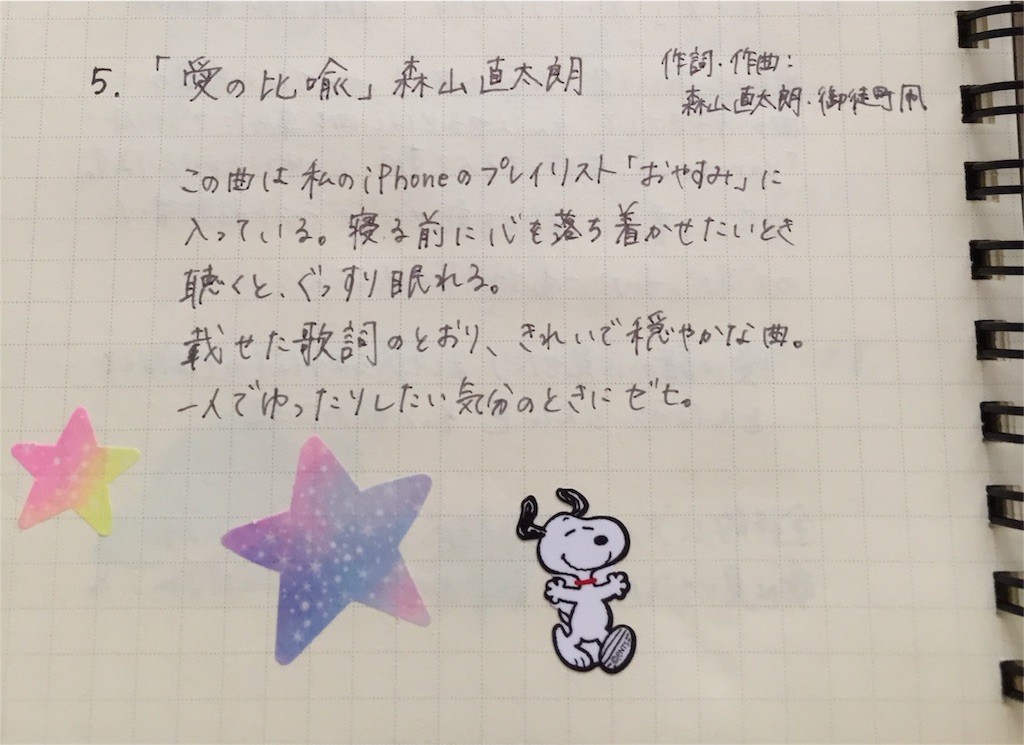 5. 「愛の比喩」森山直太朗
作詞・作曲：
森山直太朗・御徒町凧
この曲は私のiPhoneのプレイリスト「おやすみ」に
入っている。寝る前に心を落ち着かせたいとき
聴くと、ぐっすり眠れる。
載せた歌詞のとおり、きれいで穏やかな曲。
一人でゆったりしたい気分のときにぜひ。